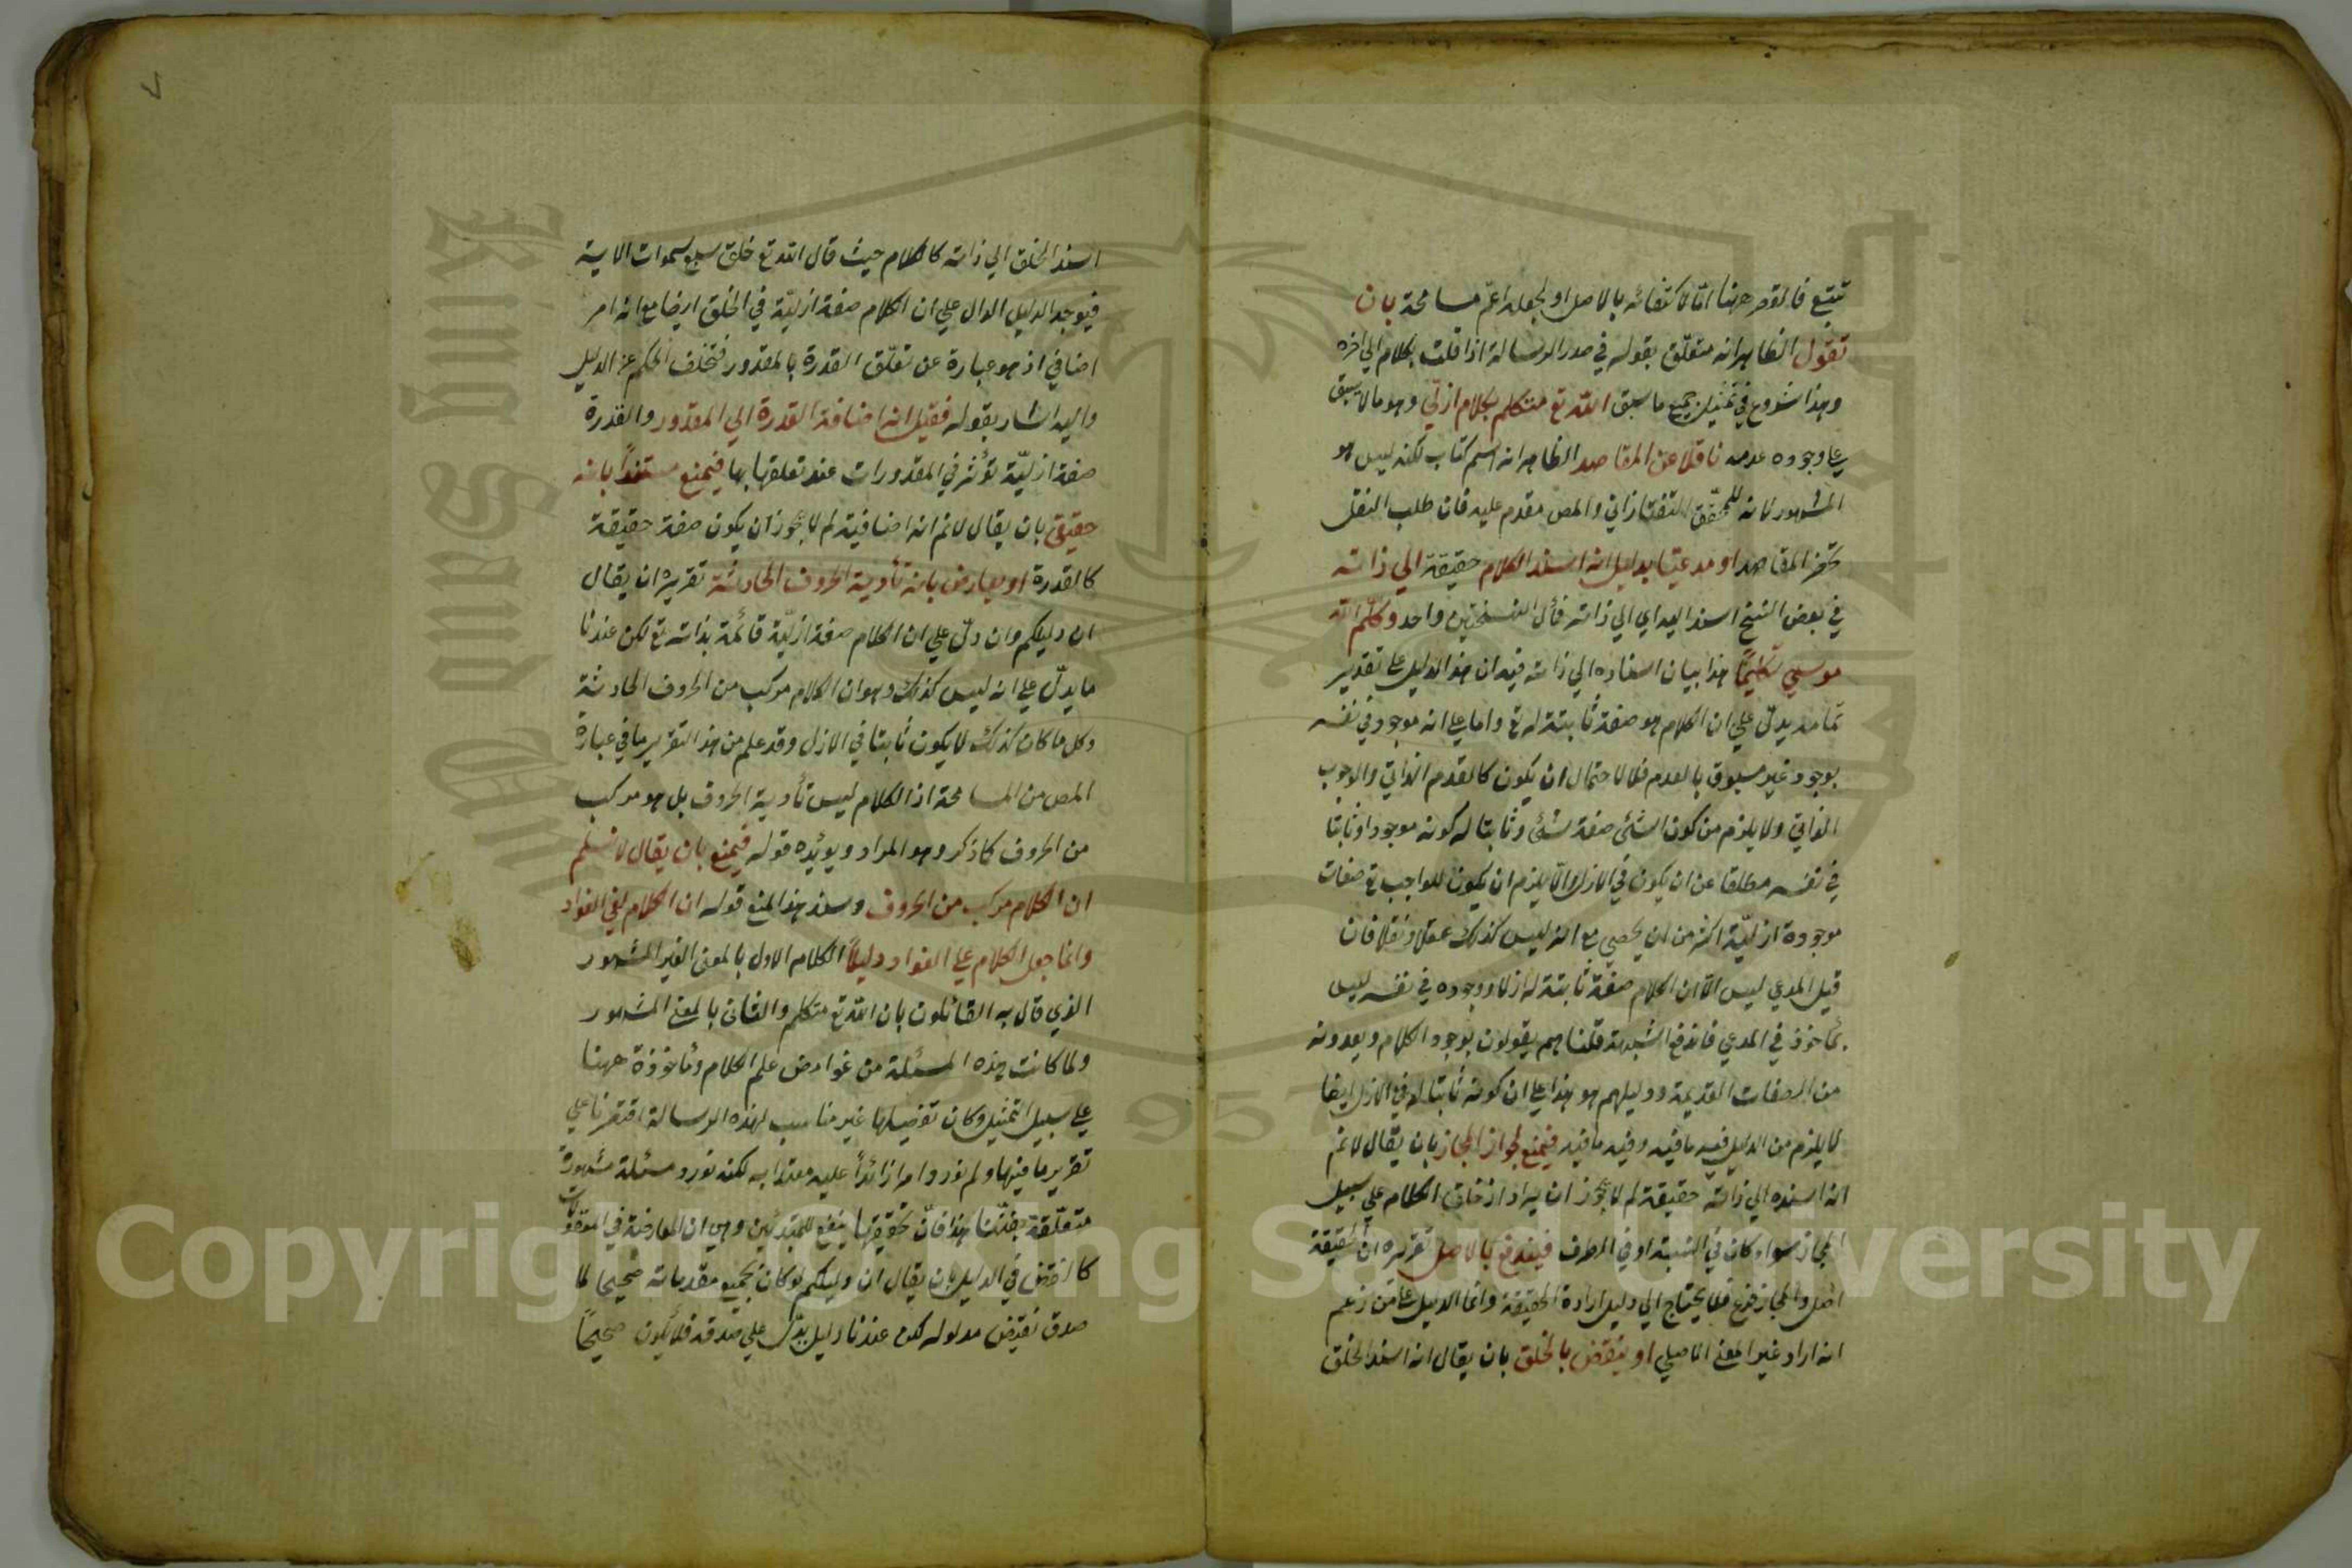 تتبع فالقصر ههنا اما لاكتفائه بالاصل او لجعله اعم مسامحة بان
تقول الظاهر انه متعلق بقوله في صدر الرسالة اذا قلت بكلام الي اخره
وهذا شروع في تمثيل جميع ما سبق الله تع متكلم بكلام ازلي وهو ما لا يسبق
علي وجوده عدمه ناقلا عن المقاصد الظاهر انه اسم كتاب لكنه ليس هو
المشهور لانه للمحقق التفتازاني والمص مقدم عليه فان طلب النقل
تحضر المقاصد او مدعيا بدليل انه اسند الكلام حقيقة الي ذاته
في بعض النسخ اسند اليه اي الي ذاته فمآل النسختين واحد وكلم الله
موسي تكليما هذا بيان اسناده الي ذاته فيه ان هذا الدليل علي تقدير
تمامه يدل علي ان الكلام هو صفة ثابتة له تع واما علي انه موجود في نفسه
بوجود غير مسبوق بالعدم فلا لاحتمال ان يكون كالقدم الذاتي والوجوب
الذاتي ولا يلزم من كون الشئ صفة لشئ وثابتا له كونه موجودا وثابتا
في نفسه مطلقا عن ان يكون في الازل والا يلزم ان يكون للواجب تع صفات
موجودة ازلية اكثر من ان يحصي مع انه ليس كذلك عقلا ونقلا فان
قيل المدعي ليس الا ان الكلام صفة ثابتة له ازلا ووجوده في نفسه ليس
بمأخوذ في المدعي فاندفع الشبهة قلنا هم يقولون بوجود الكلام ويعدونه
من الصفات القديمة ودليلهم هو هذا علي ان كونه ثابتا له في الازل ايضا
لا يلزم من الدليل ففيه ما فيه وفيه ما فيه فيمنع لجواز المجاز بان يقال لا نم
انه اسنده الي ذاته حقيقة لم لا يجوز ان يراد اذ خلق الكلام علي سبيل
المجاز سواء كان في النسبة او في الطرف فيندفع بالاصل تقريره ان الحقيقة
اصل والمجاز فرع فلا يحتاج الي دليل ارادة الحقيقة وانما الدليل علي من زعم
انه اراد غير المعني الاصلي او ينقض بالخلق بان يقال انه اسند الخلق
٧
اسند الخلق الي ذاته كالكلام حيث قال الله تع خلق سبع سموات الاية
فيوجد الدليل الدال علي ان الكلام صفة ازلية في الخلق ايضا مع انه امر
اضافي اذ هو عبارة عن تعلق القدرة بالمقدور فتخلف الحكم عن الدليل
واليه اشار بقوله فقيل انه اضافة القدرة الي المقدور والقدرة
صفة ازلية تؤثر في المقدورات عند تعلقها بها فيمنع مستندا بانه
حقيقي بان يقال لا نم انه اضافية لم لا يجوز ان يكون صفة حقيقة
كالقدرة او يعارض بانه تأدية الحروف الحادثة تقريره ان يقال
ان دليلكم وان دل علي ان الكلام صفة ازلية قائمة بذاته تع لكن عندنا
ما يدل علي انه ليس كذلك وهو ان الكلام مركب من الحروف الحادثة
وكل ما كان كذلك لا يكون ثابتا في الازل وقد علم من هذا التقرير ما في عبارة
المص من المسامحة اذ الكلام ليس تأدية الحروف بل هو مركب
من الحروف كما ذكر وهو المراد ويؤيده قوله فيمنع بان يقال لا نسلم
ان الكلام مركب من الحروف وسند هذا المنع قوله ان الكلام لفي الفواد
وانما جعل الكلام علي الفواد دليلا الكلام الاول بالمعني الغير المشهور
الذي قال به القائلون بان الله تع متكلم والثاني بالمعني المشهور
ولما كانت هذه المسئلة من غوامض علم الكلام ومأخوذة ههنا
علي سبيل التمثيل وكان تفصيلها غير مناسب لهذه الرسالة اقتصرنا علي
تقرير ما فيها ولم نورد امرا زائدا عليه معتدا به لكنه نورد مسئلة مشهورة
متعلقة بفننا هذا فان تحقيقها ينفع للمبتدئين وهي ان المعارضة في
كالنقض في الدليل بان يقال ان دليلكم لو كان بجميع مقدماته صحيحا لما
صدق نقيض مدلوله لكن عندنا دليل يدل علي صدقه فلا يكون صحيحا
Copyright © King Saud University
1957